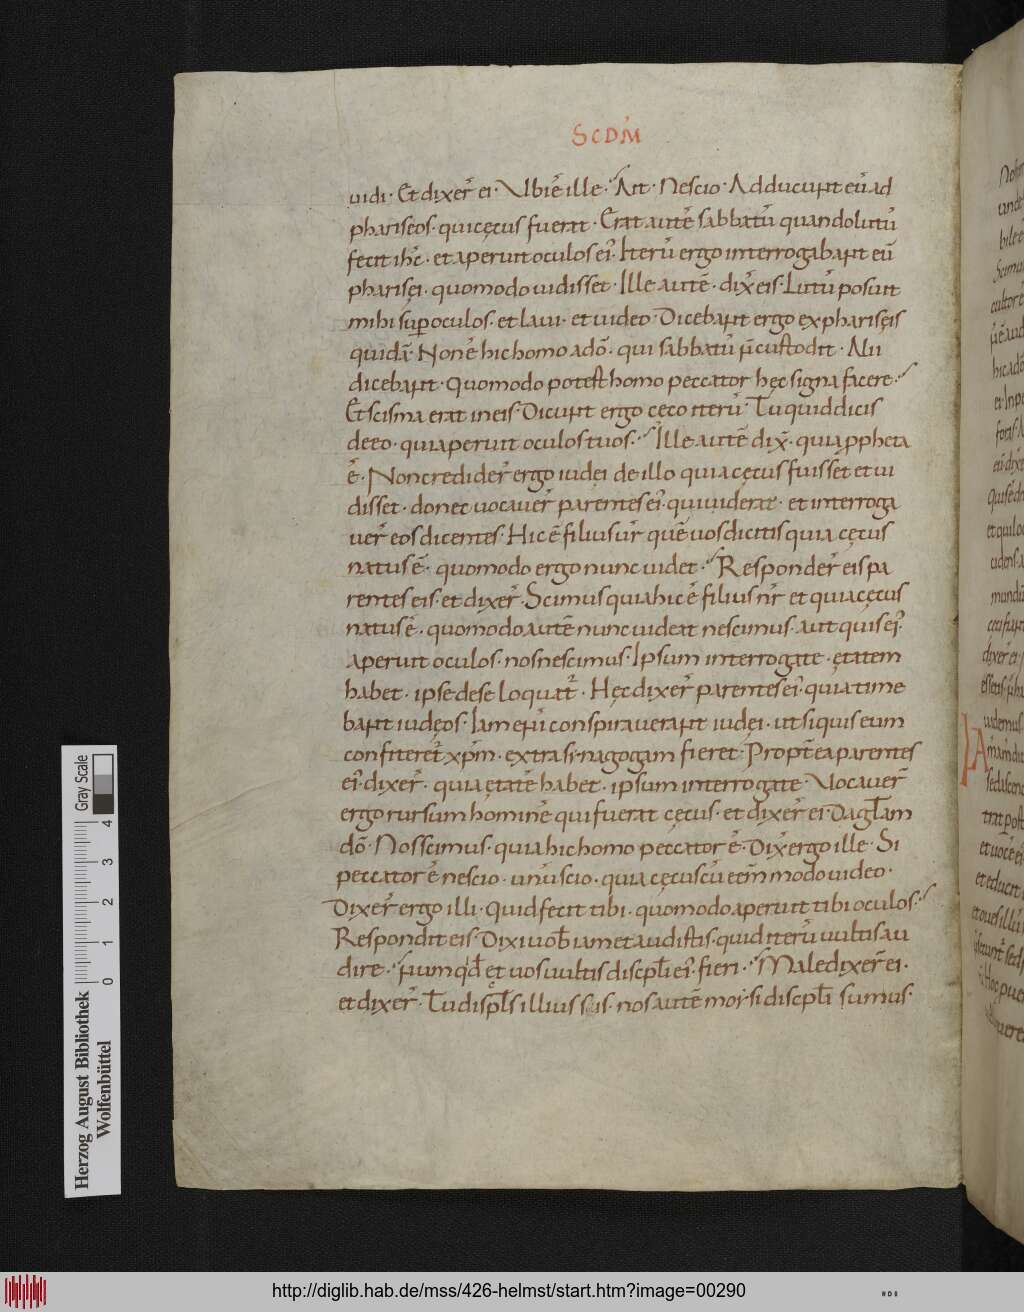 SCDM̄
uidi · Et dixer̄ ei · Vbi ē ille · Ait · Nescio · Adducunt eū ad
phariseos · qui cęcus fuerat · Erat autē sabbatū quando lutū
fecit ih̄c · et aperuit oculos ei᾿ · Iterū ergo interrogabant eū
pharisęi · quomodo uidisset · Ille autē · dix̄ eis · Lutū posuit
mihi sup̄ oculos · et laui · et uideo · Dicebant ergo ex pharisęis
quidā · Non ē hic homo a dō · qui sabbatū n̄ custodit · Alii
dicebant · Quomodo potest homo peccator hęc signa facere ·
Et scisma erat in eis · Dicunt ergo cęco iterū · Tu quid dicis
de eo · qui aperuit oculos tuos · Ille autē dix̄ · quia ppheta
ē · Non crediderr̄ ergo iudęi de illo quia cęcus fuisset et ui
disset · donec uocauer̄ parentes ei᾿ · qui uiderat · et interroga
uer̄ eos dicentes · Hic ē filius ur̄ quē uos dicitis quia cęcus
natus ē · quomodo ergo nunc uidet · Responder̄ eis pa
rentes eis · et dixer̄ · Scimus quia hic ē filius nr̄ et quia cęcus
natus ē · quomodo autē nunc uideat nescimus · aut quis ei᾿
aperuit oculos · nos nescimus · Ipsum interrogate · ętatem
habet · ipse de se loquat᾿ · Hęc dixer̄ parentes ei᾿ · quia time
bant iudęos · Iam eni᾿ conspirauerant iudęi · ut si quis eum
confiteret᾿ xp̄m · extra synagogam fieret · Propt̄ ea parentes
ei᾿ · dixer̄ · quia ętatē habet · ipsum interrogate · Vocauer̄
ergo rursum hominē qui fuerat cęcus · et dixer̄ ei · Da gl̄am
dō · Nos scimus · quia hic homo peccator ē · Dix̄ ergo ille · Si
peccator ē nescio · unū scio · quia cęcus cū eēm modo uideo ·
Dixer̄ ergo illi · Quid fecit tibi · quomodo aperuit tibi oculos ·
Respondit eis · Dixi uob̄ iam et audistis · quid iterū uultis au
dire · Nunqd̄ et uos uultis discpl̄i ei᾿ · fieri · Maledixer̄ ei ·
et dixer̄ · Tu displ̄s illius sis · nos autē moysi discpl̄i sumus ·
Herzog August Bibliothek
Wolfenbüttel
Gray Scale
0 1 2 3 4
http://diglib.hab.de/mss/426-helmst/start.htm?image=00290